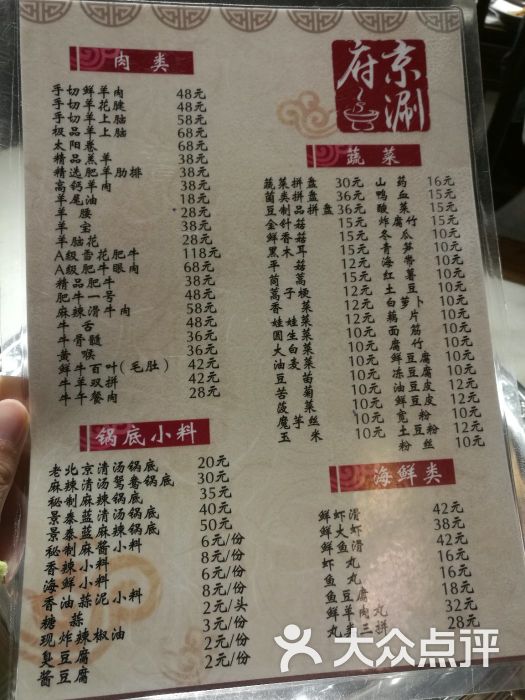 京涮府
肉类
手切鲜羊肉 48元
手切羊花腱 48元
手切羊上脑 58元
极品羊上脑 68元
太阳卷 68元
精品羔羊 38元
精选肥羊肋排 38元
高钙羊肉 38元
羊尾油 18元
羊腰 28元
羊宝 38元
羊脑花 28元
A级雪花肥牛 118元
A级肥牛眼肉 68元
精品肥牛 38元
肥牛一号 48元
麻辣滑牛肉 58元
牛舌 48元
牛骨髓 36元
黄喉 36元
鲜牛百叶(毛肚) 42元
牛羊双拼 42元
牛午餐肉 28元
锅底小料
老北京清汤锅底 20元
麻辣清汤鸳鸯锅底 30元
秘制麻辣锅底 35元
景泰蓝清汤锅底 40元
景泰蓝麻辣锅底 50元
秘制麻酱小料 6元/份
香辣小料 6元/份
海鲜小料 8元/份
香油蒜泥小料 8元/份
糖蒜 2元/头
现炸辣椒油 2元/份
臭豆腐 2元/份
酱豆腐 2元/份
蔬菜
蔬菜拼盘 30元
菌类拼盘 36元
豆制品拼盘 36元
金针菇 15元
鲜香菇 15元
黑木耳 15元
平菇 12元
茼蒿 12元
蒿子梗 12元
香菜
娃娃菜 10元
圆生菜 10元
大白菜 10元
油麦菜 10元
豆苗 10元
苦菊 10元
菠菜 10元
魔芋丝 10元
玉米 10元
山药 16元
鸭血 15元
酸菜 15元
炸腐竹 15元
冬瓜
青笋
海带
红薯
土豆 10元
白萝卜 10元
藕片 10元
面筋 10元
腐竹
鲜豆腐
冻豆腐
油豆皮
鲜豆皮
宽粉
土豆粉 12元
粉丝 10元
海鲜类
鲜虾滑 42元
鲜大虾 38元
鲜鱼滑 42元
虾丸 16元
鱼丸 16元
鱼豆腐 18元
鲜羊肉丸 32元
丸类三拼 28元
大众点评